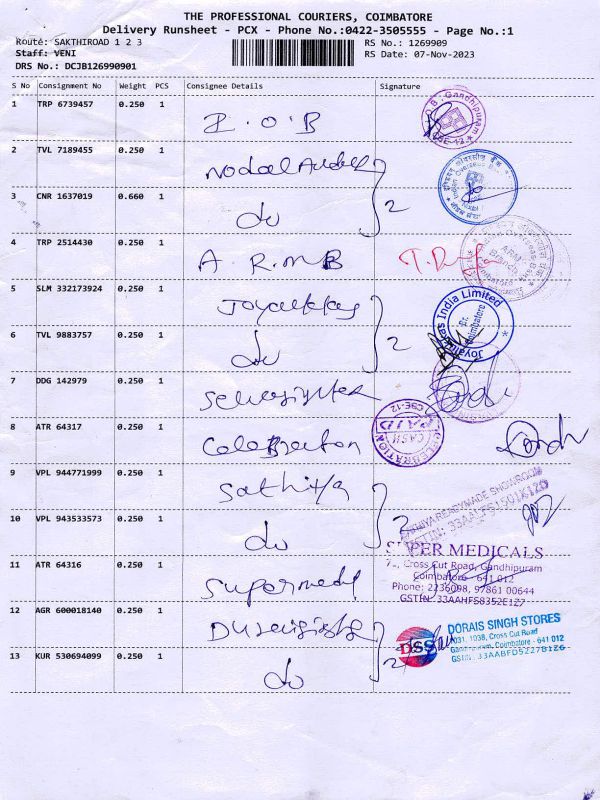 THE PROFESSIONAL COURIERS, COIMBATORE
Delivery Runsheet - PCX - Phone No.:0422-3505555 - Page No.:1
Route: SAKTHIROAD 1 2 3
RS No.: 1269909
Staff: VENI
RS Date: 07-Nov-2023
DRS No.: DCJB126990901
S No Consignment No Weight PCS Consignee Details Signature
1 TRP 6739457 0.250 1 I.O.B
O.B. Gandhipuram
CBE-12
2 TVL 7189455 0.250 1 Nodal
3 CNR 1637019 0.660 1 do 2
4 TRP 2514430 0.250 1 A.R.M B
5 SLM 332173924 0.250 1 Joyalukkas
Joyalukkas India Limited
Coimbatore
6 TVL 9883757 0.250 1 do 2
7 DDG 142979 0.250 1
8 ATR 64317 0.250 1 Celebration
CELEBRATION
CBE-12
CASH
PAID
9 VPL 944771999 0.250 1 Sathiya
READYMADE SHOWROOM
10 VPL 943533573 0.250 1 do 2
SUPER MEDICALS
Cross Cut Road, Gandhipuram
Coimbatore - 641 012
Phone: 2236098, 97861 00644
GSTIN: 33AAHFS8352E1Z7
11 ATR 64316 0.250 1 Supermedi
12 AGR 600018140 0.250 1
DSS
DORAIS SINGH STORES
1038, Cross Cut Road
Gandhipuram, Coimbatore - 641 012
GSTIN : 33AABFD5227B1Z6
13 KUR 530694099 0.250 1 do 2